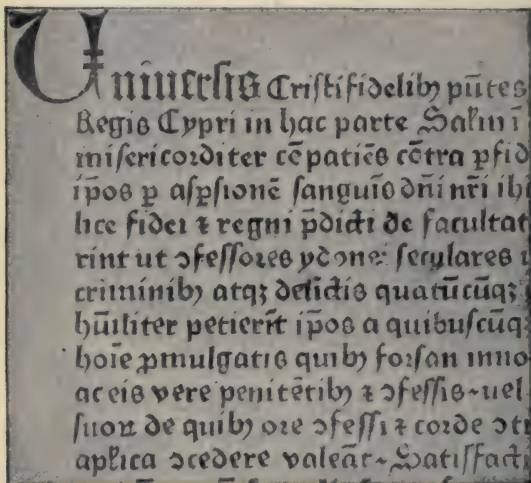 Uniuersis Cristifidelibꝫ p̄ntes
Regis Cypri in hac parte Salm̄ ī
misericorditer cōpatiēs cōtra ꝑfid
ip̄os ꝑ asꝑsionē sanguīs dn̄i nr̄i ih
lice fidei ⁊ regni p̄dicti de facultat
rint ut ꝯfessores ydone seculares
criminibꝫ atqꝫ delictis quātūcūqꝫ
hūiliter petierīt ip̄os a quibuscūq
hoīe ꝓmulgatis quibꝫ forsan inno
ac eis vere penitētibꝫ ⁊ ꝯfessis uel
suoꝝ de quibꝫ ore ꝯfessi ⁊ corde ꝯtr
apl̄ica ꝯcedere valeat Satisfacti